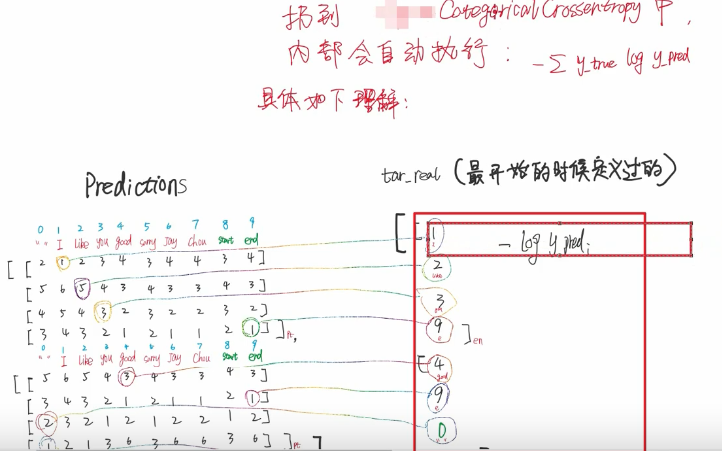 扔到 Categorical Crossentropy 中,
内部会自动执行: -Σ y_true log y_pred
具体如下理解:
Predictions
tar_real (最开始的时候定义过的)
0 1 2 3 4 5 6 7 8 9
" " I like you good sorry Jay Chou start end
[ [ 2 1 2 3 4 3 4 4 3 4 ]
[ 5 6 5 4 3 4 3 3 4 3 ]
[ 4 5 4 3 2 3 2 2 3 2 ]
[ 3 4 3 2 1 2 1 1 2 1 ] ] pt,
0 1 2 3 4 5 6 7 8 9
" " I like you good sorry Jay Chou start end
[ [ 5 6 5 4 3 4 3 3 4 3 ]
[ 3 4 3 2 1 2 1 1 2 1 ]
[ 2 3 2 1 2 1 2 2 1 2 ]
[ 1 2 1 3 6 3 6 6 3 6 ] ] pt ]
[ 1
- log y_pred;
2
3
9 ] en
[ 4
good
9
0